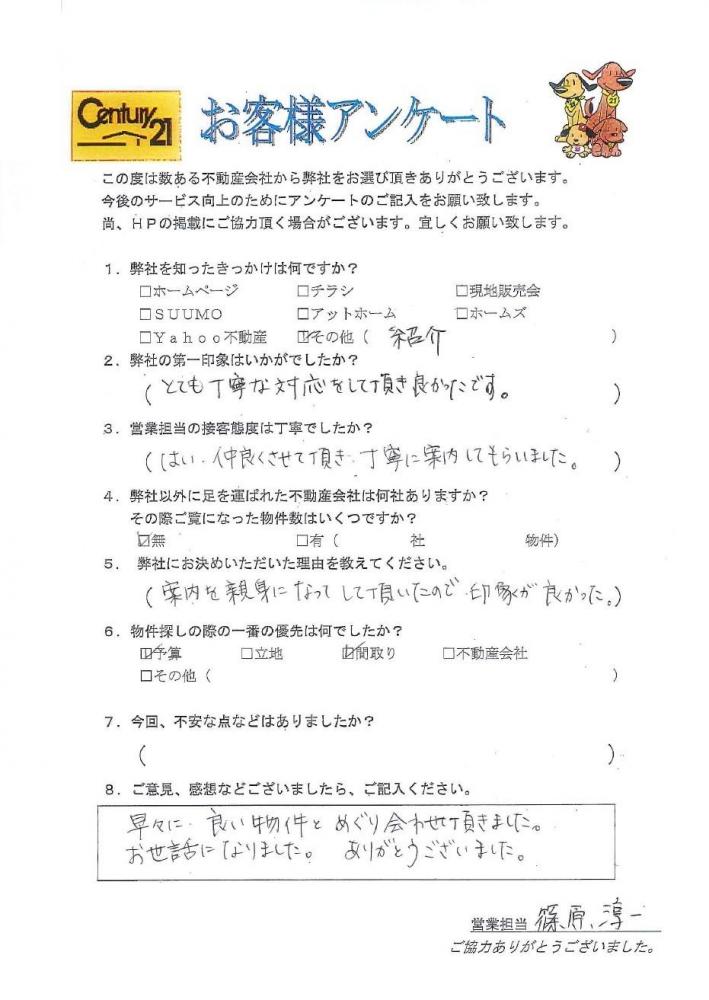 Century 21
お客様アンケート
この度は数ある不動産会社から弊社をお選び頂きありがとうございます。
今後のサービス向上のためにアンケートのご記入をお願い致します。
尚、HPの掲載にご協力頂く場合がございます。宜しくお願い致します。
1．弊社を知ったきっかけは何ですか？
□ホームページ □チラシ □現地販売会
□SUUMO □アットホーム □ホームズ
□Yahoo不動産 ☑その他（ 紹介 ）
2．弊社の第一印象はいかがでしたか？
（とても丁寧な対応をして頂き良かったです。）
3．営業担当の接客態度は丁寧でしたか？
（はい．仲良くさせて頂き．丁寧に案内してもらいました。）
4．弊社以外に足を運ばれた不動産会社は何社ありますか？
その際ご覧になった物件数はいくつですか？
☑無 □有（ 社 物件）
5． 弊社にお決めいただいた理由を教えてください。
（案内を親身になってして頂いたので．印象が良かった。）
6．物件探しの際の一番の優先は何でしたか？
☑予算 □立地 ☑間取り □不動産会社
□その他（ ）
7．今回、不安な点などはありましたか？
（ ）
8．ご意見、感想などございましたら、ご記入ください。
早々に．良い物件とめぐり合わせ頂きました。
お世話になりました。 ありがとうございました。
営業担当 篠原 淳一
ご協力ありがとうございました。